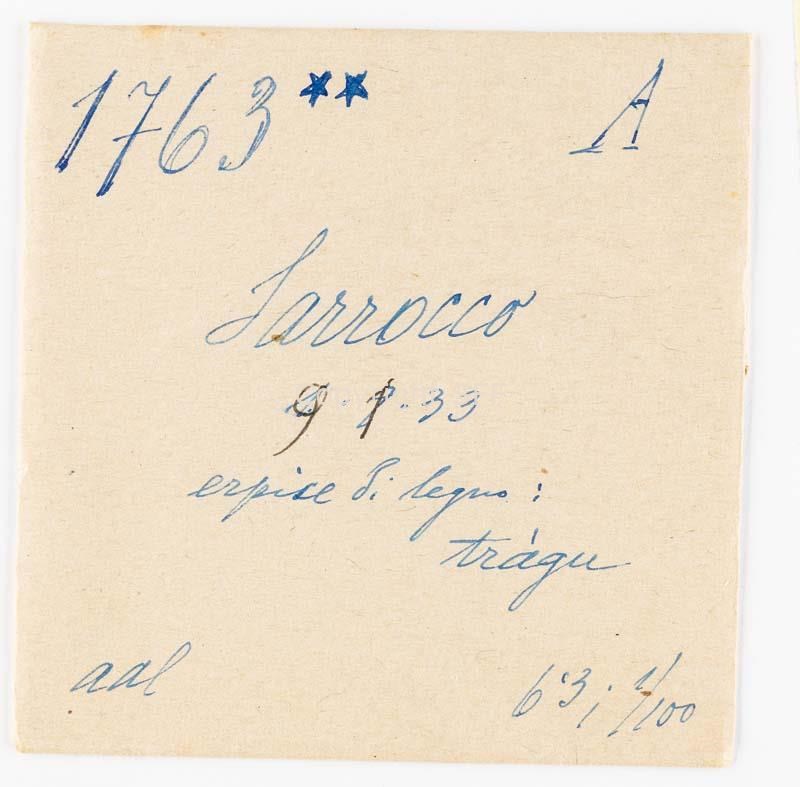 1763** A
Sarrocco
9·1·33
erpice di legno:
tràgu
aal
6'3; 1/100